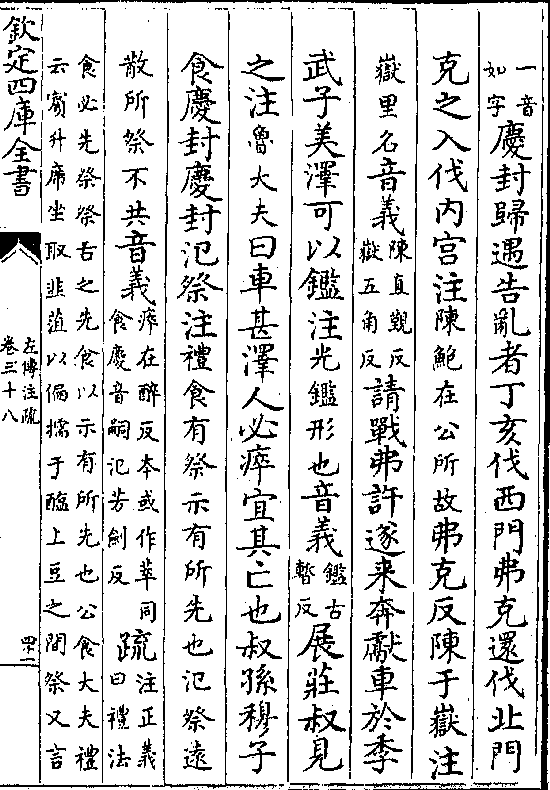 一音
如字
慶封歸遇告亂者丁亥伐西門弗克還伐北門
克之入伐内宫注陳鮑在公所故弗克反陳于嶽注
嶽里名音義
陳直覲反
嶽五角反
請戰弗許遂来奔獻車於季
武子美澤可以鑑注光鑑形也音義
鑑古
暫反
展莊叔見
之注魯大夫曰車甚澤人必瘁宜其亡也叔孫穆子
食慶封慶封氾祭注禮食有祭示有所先也氾祭遠
散所祭不共音義
瘁在醉反本或作萃同
食慶音嗣氾芳劍反
疏
注正義
曰禮法
食必先祭祭古之先食以示有所先也公食大夫禮
云賓升席坐取韭菹以徧擩于醢上豆之間祭又言
欽定四庫全書
左傳注疏
卷三十八
四十二